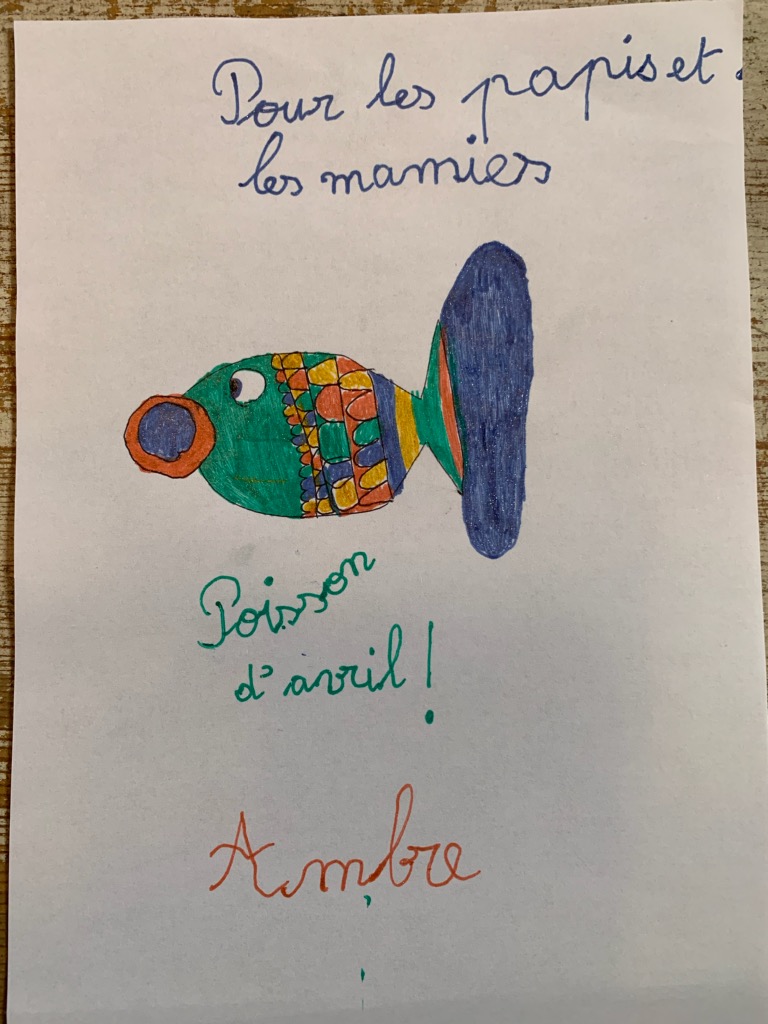 Pour les papis et
les mamies
Poisson
d'avril !
Ambre